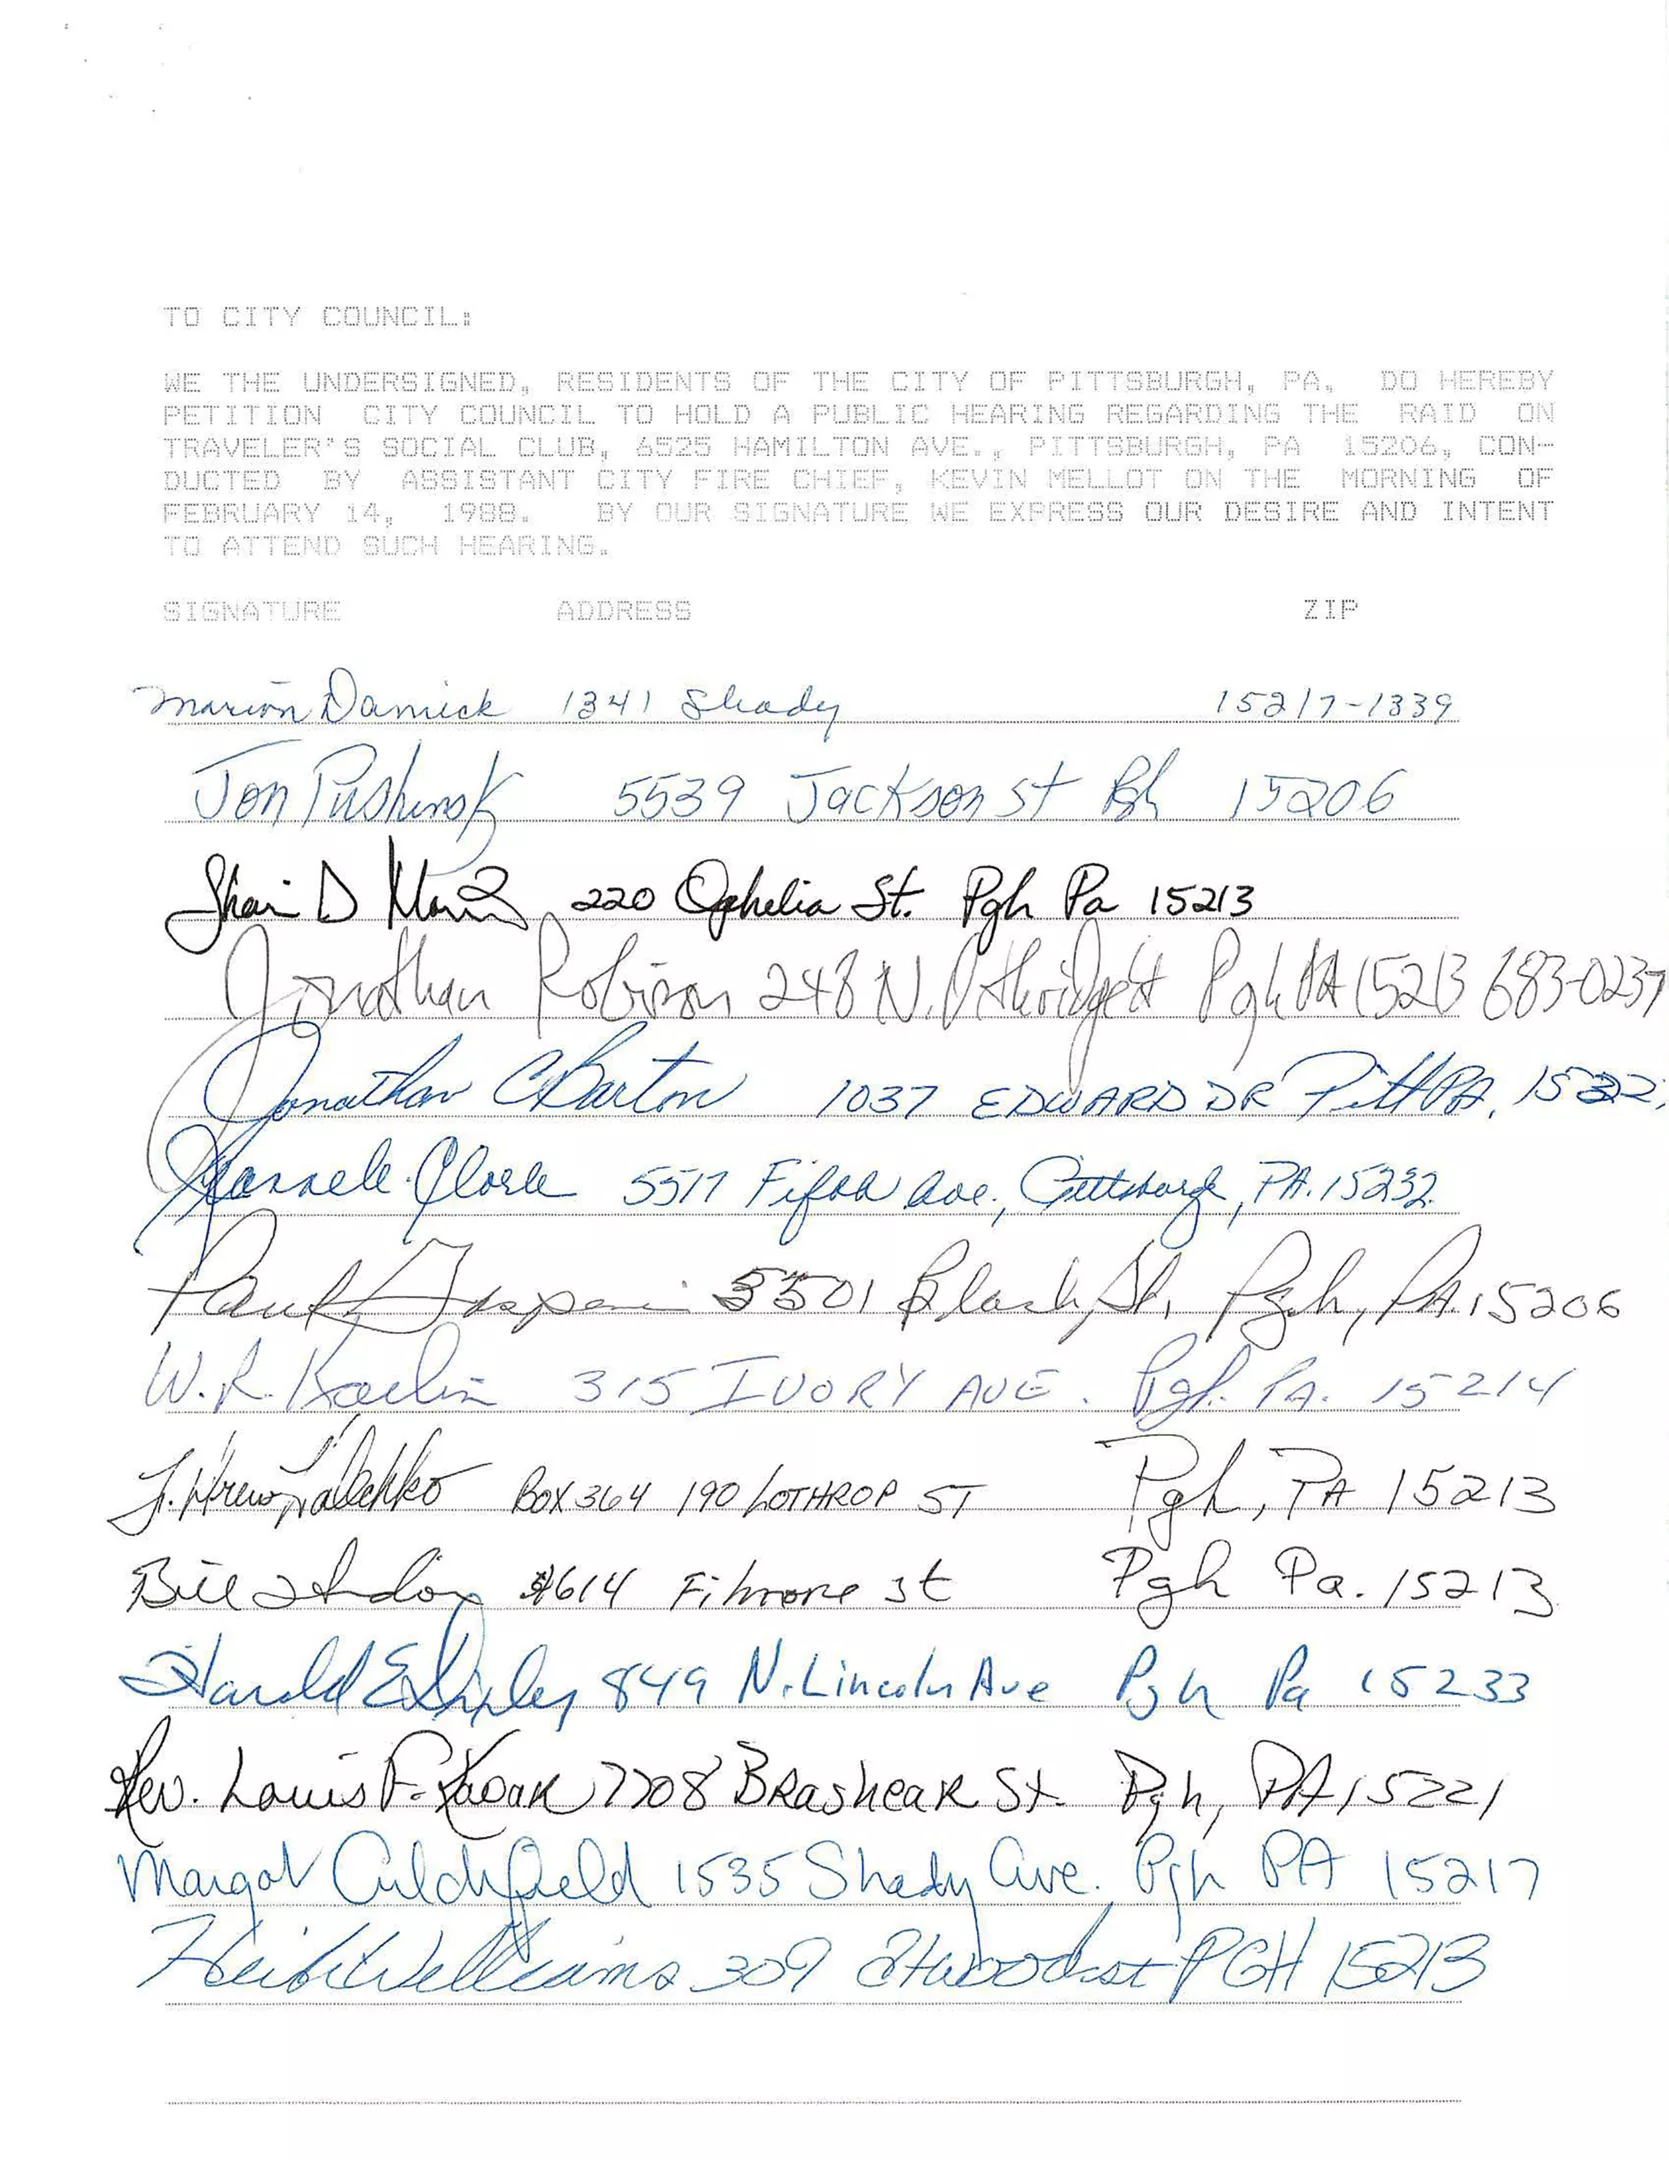 TO CITY COUNCIL:
WE THE UNDERSIGNED, RESIDENTS OF THE CITY OF PITTSBURGH, PA, DO HEREBY
PETITION CITY COUNCIL TO HOLD A PUBLIC HEARING REGARDING THE RAID ON
TRAVELER'S SOCIAL CLUB, 6525 HAMILTON AVE., PITTSBURGH, PA 15206, CON-
DUCTED BY ASSISTANT CITY FIRE CHIEF, KEVIN MELLOT ON THE MORNING OF
FEBRUARY 14, 1988. BY OUR SIGNATURE WE EXPRESS OUR DESIRE AND INTENT
TO ATTEND SUCH HEARING.
SIGNATURE ADDRESS ZIP
Marion Damick 1341 Shady 15217-1339
Jon Pushinsky 5539 Jackson St Pgh 15206
D 220 Ophelia St. Pgh Pa 15213
Jonathan Robison 248 N. Pgh PA 15213 683-0237
Jonathan C Barton 1037 EDWARD DR Pitt PA.
5517 Fifth Ave., Pittsburgh, PA. 15232
Paul 5501 Black St, Pgh, PA. 15206
W.R. 315 IVORY AVE. Pgh. PA. 15214
BOX 364 190 LOTHROP ST Pgh, PA 15213
Bill 614 Filmore st Pgh Pa. 15213
Harold E 849 N. Lincoln Ave Pgh Pa 15233
Rev. Louis F. 7708 BRasheaR St. Pgh, PA 15221
Margot 1535 Shady Ave. Pgh PA 15217
Williams 309 Atwood st PGH 15213